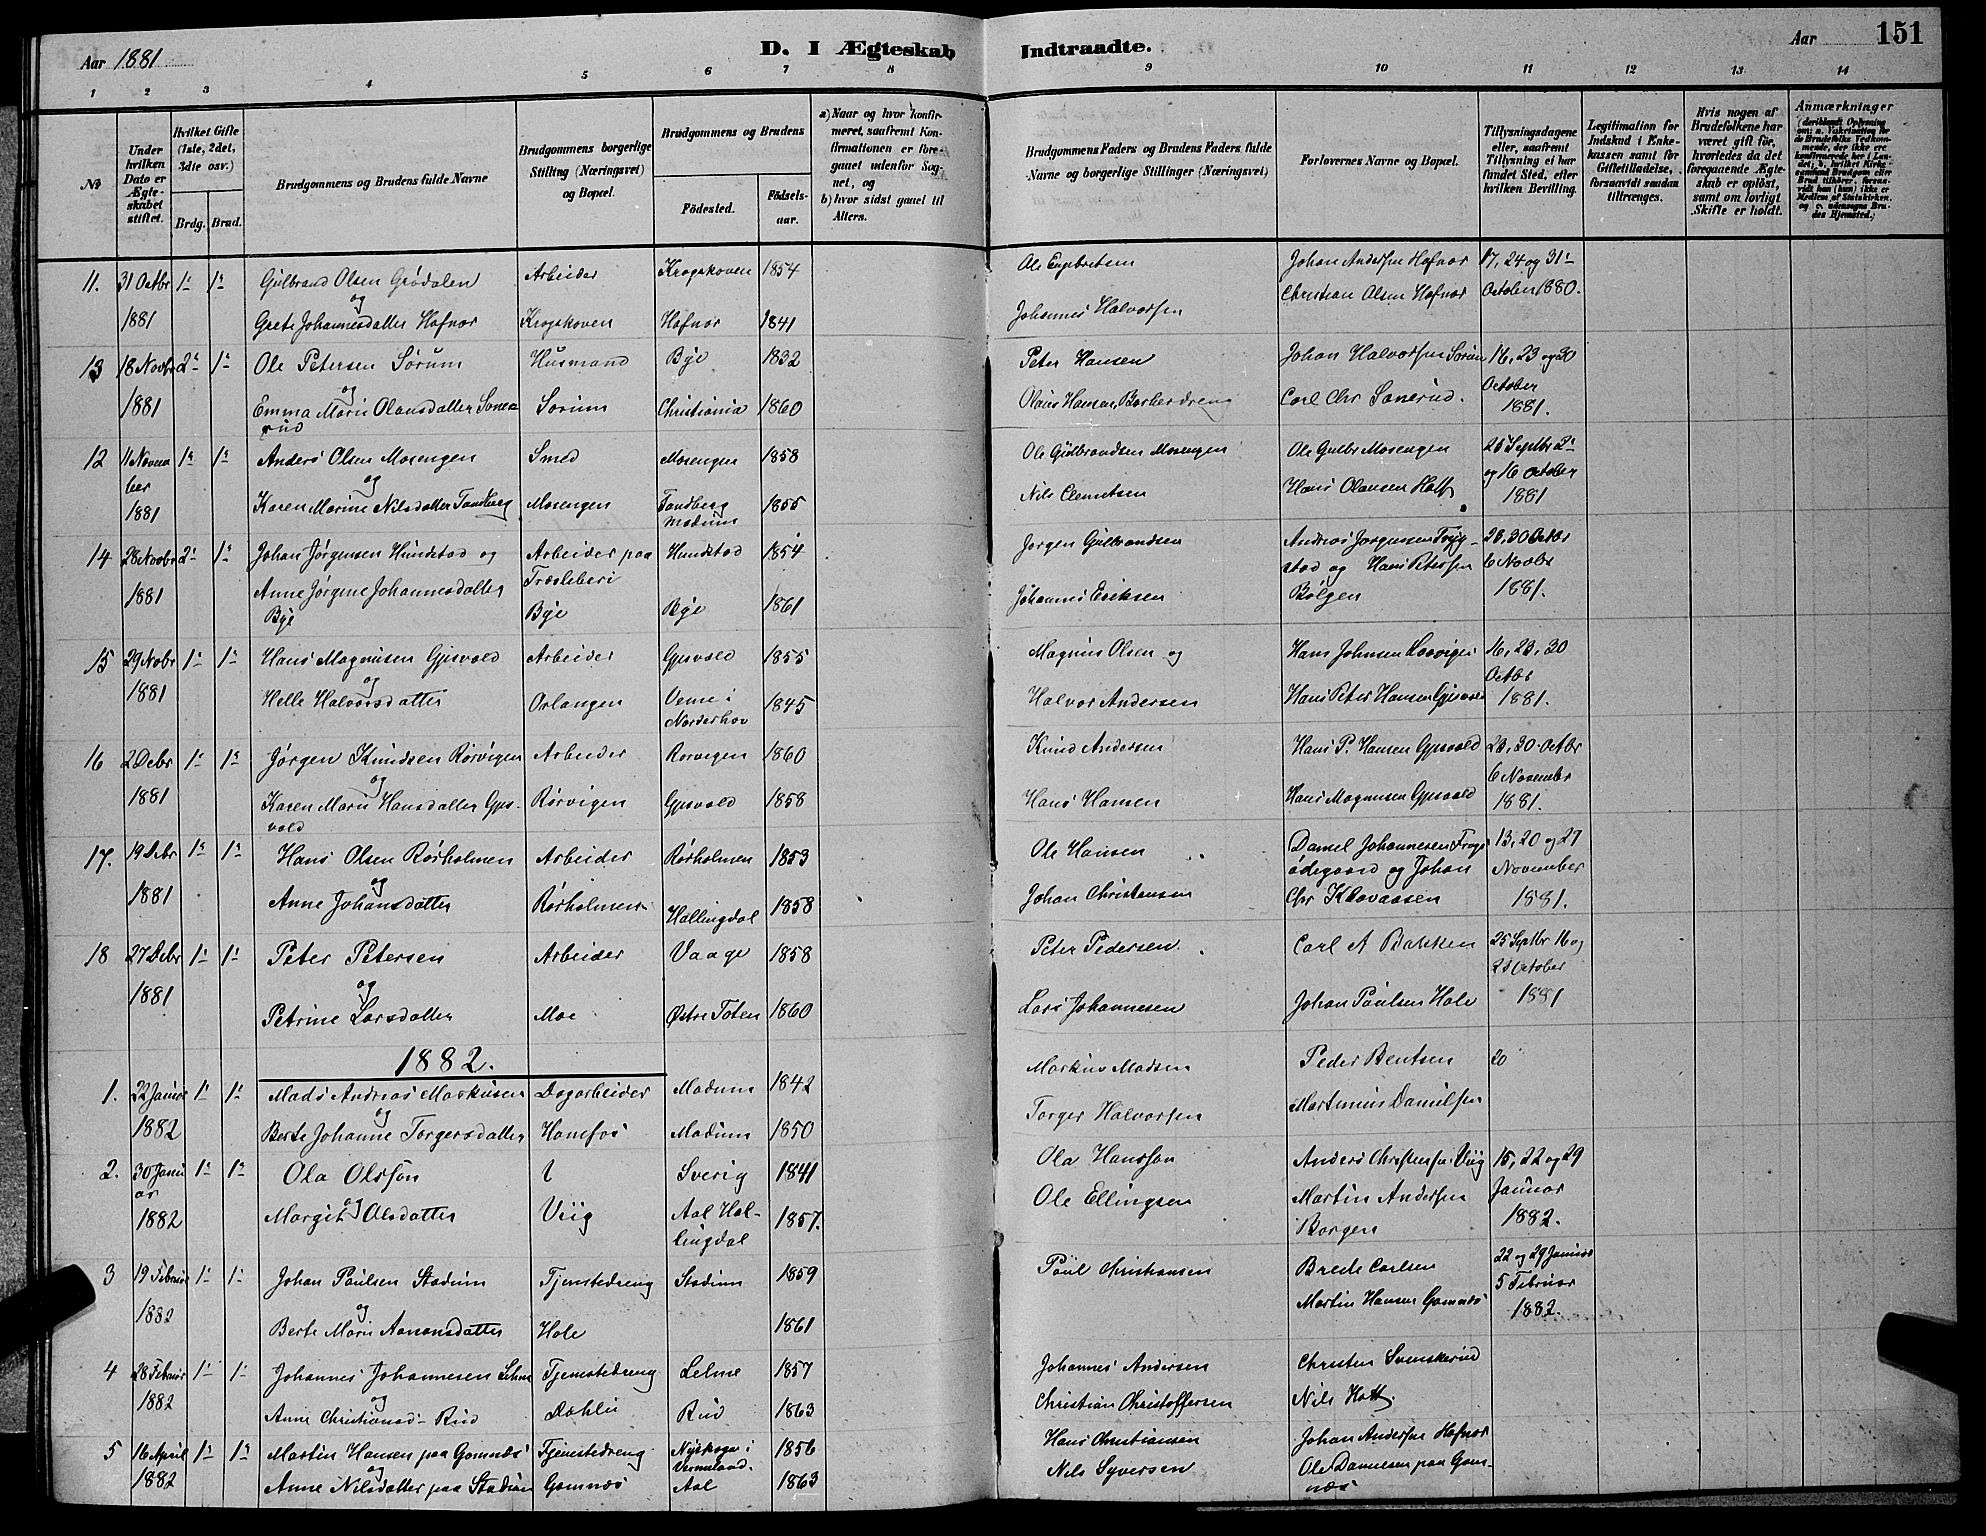 Aar 1881
D. I Ægteskab Indtraadte.
Aar 151
1 2 3 4 5 6 7 8 9 10 11 12 13 14
№
Under hvilken Dato er Ægteskabet stiftet.
Hvilket Gifte (1ste, 2det, 3die osv.)
Brdg. Brud.
Brudgommens og Brudens fulde Navne
Brudgommens borgerlige Stilling (Næringsvei) og Bopæl.
Brudgommens og Brudens
Fødested.
Fødselsaar.
a) Naar og hvor konfirmeret, saafremt Konfirmationen er foregaaet udenfor Sognet, og
b) hvor sidst gaaet til Alters.
Brudgommens Faders og Brudens Faders fulde Navne og borgerlige Stillinger (Næringsvei)
Forlovernes Navne og Bopæl.
Tillysningsdagene eller, saafremt Tillysning ei har fundet Sted, efter hvilken Bevilling.
Legitimation for Indskud i Enkekassen samt for Giftetilladelse, forsaavidt saadan tiltrænges.
Hvis nogen af Brudefolkene har været gift før, hvorledes da det foregaaende Ægteskab er opløst, samt om lovligt Skifte er holdt.
Anmærkninger
11. 31 Octbr 1ˢ 1ˢ Gulbrand Olsen Grødalen Arbeider Krogskoven 1854 Ole Engbretsen Johan Andersen Hafnor 17, 24 og 31ˢ
og Christian Olsen Hafnor October 1880.
1881 Grete Johannesdatter Hafnor Krogskoven Hafnor 1841 Johannes Halvorsen
13 18 Novbr 2ˢ 1ˢ Ole Petersen Sørum Husmand Bye 1832 Peter Hansen Johan Halvorsen Sørum 16, 23 og 30
og October
1881 Emma Marie Olausdatter Soner- Sørum Christiania 1860 Olaus Hansen, Carl Chr Sonerud. 1881.
rud
12 11 Novem 1ˢ 1ˢ Anders Olsen Mosengen Smed Mosengen 1858 Ole Gulbrandsen Mosengen Ole Gulbr Mosengen 25 Septbr 2ˢ
ber og og 16 October
1881 Karen Marine Nilsdatter Tandberg Mosengen Tandberg 1855 Nils Clemetsen Hans Olausen 1881
Modum
14 28 Novbr 2ˢ 1ˢ Johan Jørgensen Hundstad og Arbeider paa Hundstad 1854 Jørgen Gulbrandsen Andreas Jørgensen Tryg- 23, 30 Octbr
Træsliberi stad og Hans Petersen 6 Novbr
1881 Anne Jørgine Johannesdatter Bye Bye 1861 Johannes Eriksen Bølgen 1881.
Bye
15 29 Nobr 1ˢ 1ˢ Hans Magnusen Gjesvold Arbeider Gjesvold 1855 Magnus Olsen og Hans Johnsen 16, 23, 30
og Octbr
1881 Helle Halvorsdatter Orlangen Veme i 1845 Halvor Andersen Hans Peter Hansen Gjesvold 1881.
Norderhov
16 2 Debr 1ˢ 1ˢ Jørgen Knudsen Rørvigen Arbeider Rørvigen 1860 Knud Andersen Hans P. Hansen Gjesvold 23, 30 Octbr
og 6 November
1881 Karen Marie Hansdatter Gjes- Rørvigen Gjesvold 1858 Hans Hansen Hans Magnusen Gjesvold 1881.
vold
17. 19 Debr 1ˢ 1ˢ Hans Olsen Rørholmen Arbeider Rørholmen 1853 Ole Hansen Daniel Johannesen Frogn- 13, 20 og 27
og ødegaard og Johan November
1881 Anne Johansdatter Rørholmen Hallingdal 1858 Johan Christensen Chr Klovaasen 1881.
18 27 Debr 1ˢ 1ˢ Peter Petersen Arbeider Vaage 1858 Peter Pedersen Carl A Bakken 25 Septbr 16 og
og 23 October
1881 Petrine Larsdatter Moe Østre Toten 1860 Lars Johannesen Johan Paulsen Hole 1881
1882.
1. 22 Januar 1ˢ 1ˢ Mads Andreas Markusen Dagarbeider Modum 1842 Markus Madsen Peder Bentsen 20
og
1882 Berte Johanne Torgersdatter Hønefos Modum 1850 Torger Halvorsen Martinius Danielsen
2. 30 Janu 1ˢ 1ˢ Ola Olsson Sverig 1841 Ola Hansson Anders Christensen Viig 15, 22 og 29
ar og Januar
1882 Margit Olsdatter Viig Aal Hal- 1857. Ole Ellingsen Martin Andersen 1882.
lingdal Borgen
3 19 Februar 1ˢ 1ˢ Johan Paulsen Stadum Tjenestedreng Stadum 1859 Paul Christiansen Brede Carlsen 22 og 29 Januar
og 5 Februar
1882 Berte Marie Aanonsdatter Hole 1861 Martin Hansen Gomnæs 1882.
4 28 Februar 1ˢ 1ˢ Johannes Johannesen Lehne Tjenestedreng Lelme 1857 Johannes Andersen Christen Svenskerud
og
1882 Anne Christiansd- Rud Dahlie Rud 1863 Christian Christoffersen Nils
5 16 April 1ˢ 1ˢ Martin Hansen paa Gomnæs Tjenestedreng Nyskoga i 1856 Hans Christiansen Johan Andersen Hafnor
og Vermeland.
1882 Anne Nilsdatter paa Stadum Gomnæs Aal 1863 Nils Syversen Ole Danielsen paa Gom-
næs